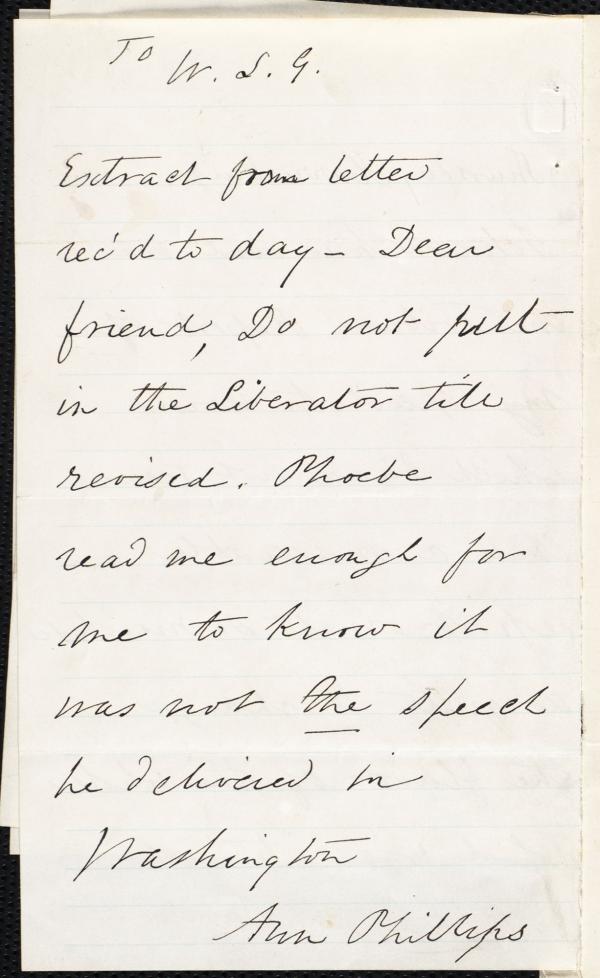 To W. L. G.
Extract from letter
rec'd to day – Dear
friend, Do not put
in the Liberator till
revised. Phoebe
read me enough for
me to know it
was not the speech
he delivered in
Washington
Ann Phillips